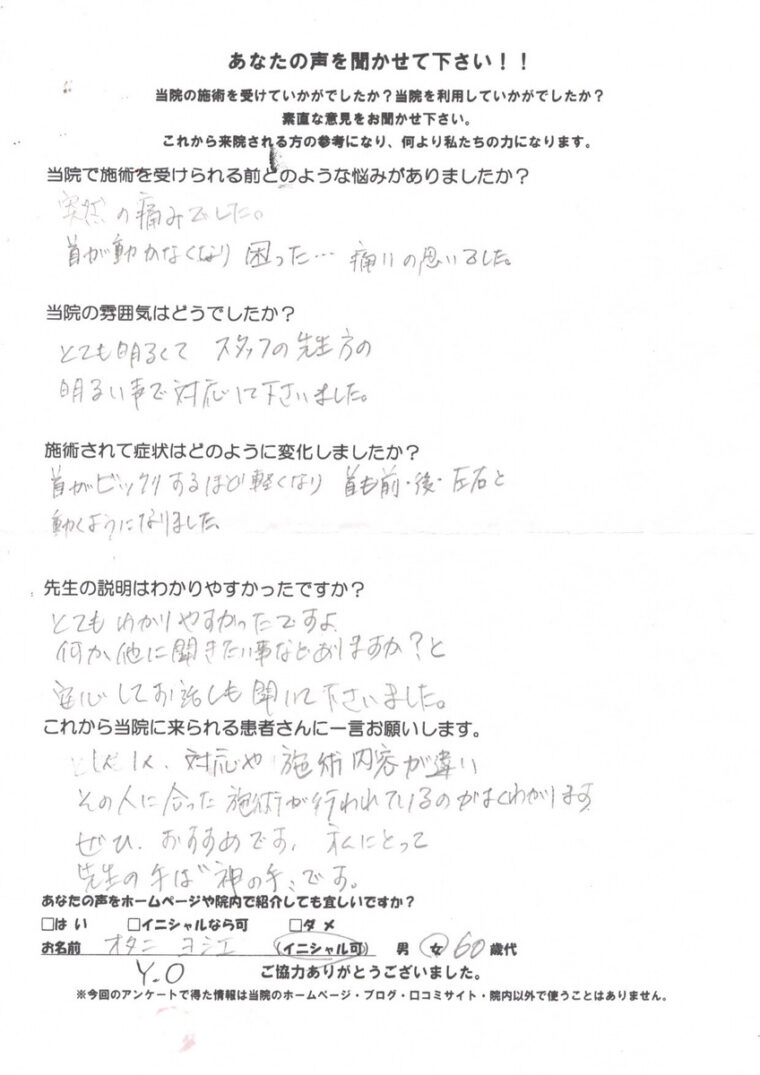 あなたの声を聞かせて下さい！！
当院の施術を受けていかがでしたか？当院を利用していかがでしたか？
素直な意見をお聞かせ下さい。
これから来院される方の参考になり、何より私たちの力になります。
当院で施術を受けられる前どのような悩みがありましたか？
突然の痛みでした。
首が動かなくなり 困った… 痛い思いでした。
当院の雰囲気はどうでしたか？
とても明るくて スタッフの先生方の
明るい声で対応して下さいました。
施術されて症状はどのように変化しましたか？
首がビックリするほど軽くなり 首も前・後・左右と
動くようになりました。
先生の説明はわかりやすかったですか？
とてもわかりやすかったですよ
何か他に聞きたい事などありますか？と
安心してお話しも聞いて下さいました。
これから当院に来られる患者さんに一言お願いします。
対応や 施術内容が違い
その人に合った施術が行われているのがよくわかります
ぜひ、おすすめです。 私にとって
先生の手は“神の手”です。
あなたの声をホームページや院内で紹介しても宜しいですか？
□はい □イニシャルなら可 □ダメ
お名前 オタニ ヨシエ (イニシャル可) 男 女 60歳代
Y.O ご協力ありがとうございました。
※今回のアンケートで得た情報は当院のホームページ・ブログ・口コミサイト・院内以外で使うことはありません。